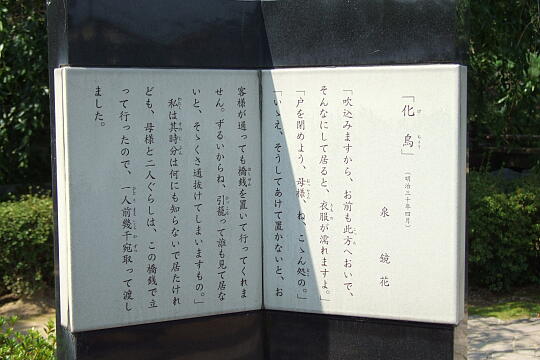 「化鳥」（明治三十年四月）
泉 鏡花
「吹込みますから、お前も此方へおいで、
そんなにして居ると、衣服が濡れますよ。」
「戸を閉めよう、母様、ね、こゝん処の。」
「いゝえ、そうしてあけて置かないと、お
客様が通っても橋銭を置いて行ってくれま
せん。ずるいからね、引籠って誰も見て居な
いと、そゝくさ通抜けてしまいますもの。」
私は其時分は何にも知らないで居たけれ
ども、母様と二人ぐらしは、この橋銭で立
って行ったので、一人前幾于宛取って渡し
ました。